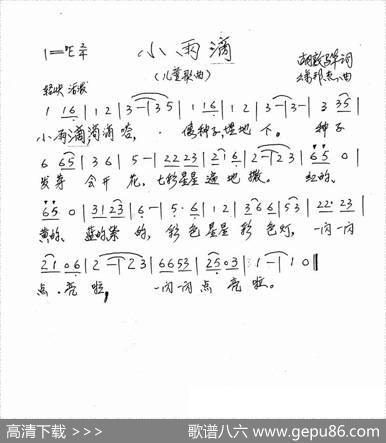 1=♭E 2/4
小雨滴
(儿童歌曲)
轻快 活泼
词
曲
1 16 | 1 2 | 3 - | 3 5 | 1 16 | 1 2 | 3 - | 3 - | 3 35 |
小雨滴滴滴哒， 传种子埋地下。 种子
6 65 | 3 6 | 5 - | 22 23 | 21 6 | 2 - | 2 23 | 65 0 |
发芽 会开 花，七彩星星遍地撒。 红的、
65 0 | 31 23 | 6 - | 5· 6 | 1 2 | 3 66 | 53 | 22· 23 |
黄的、 蓝的紫 的，彩色星星彩色灯，一闪一闪
21 06 | 2 - | - 23 | 66 53 | 25 03 | 1 - | 1 0 ‖
点·亮 啦， 一闪一闪点 亮 啦。
高清下载 >>>
歌谱八六 www.gepu86.com